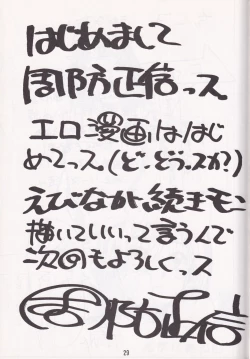 はじめまして
周防正信っス。
エロ漫画は、はじ
めてっス。(ど、どうっスか?)
えびなが、続きモン
描いていいって言うんで
次のもよろしくっス
周防正信
29